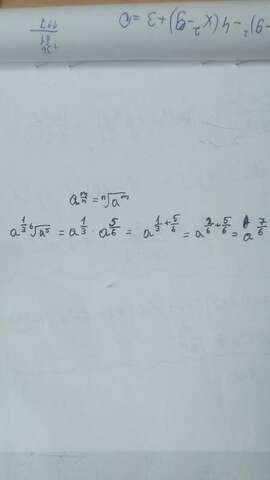 -9)² - 4(x² - 9) + 3 = 0
+36
81
117
a^{\frac{m}{n}} = \sqrt[n]{a^m}
a^{\frac{1}{3}} \sqrt[6]{a^5} = a^{\frac{1}{3}} · a^{\frac{5}{6}} = a^{\frac{1}{3}+\frac{5}{6}} = a^{\frac{2}{6}+\frac{5}{6}} = a^{\frac{7}{6}}